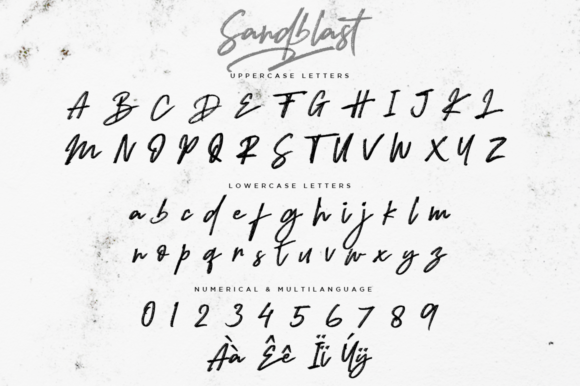 Sandblast
UPPERCASE LETTERS
A B C D E F G H I J K L
M N O P Q R S T U V W X Y Z
LOWERCASE LETTERS
a b c d e f g h i j k l m
n o p q r s t u v w x y z
NUMERICAL & MULTILANGUAGE
0 1 2 3 4 5 6 7 8 9
Àà Êê Ïï Úÿ